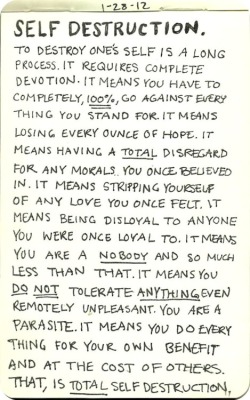 1-28-12
SELF DESTRUCTION.
TO DESTROY ONE'S SELF IS A LONG
PROCESS. IT REQUIRES COMPLETE
DEVOTION. IT MEANS YOU HAVE TO
COMPLETELY, 100%, GO AGAINST EVERY
THING YOU STAND FOR. IT MEANS
LOSING EVERY OUNCE OF HOPE. IT
MEANS HAVING A TOTAL DISREGARD
FOR ANY MORALS YOU ONCE BELIEVED
IN. IT MEANS STRIPPING YOURSELF
OF ANY LOVE YOU ONCE FELT. IT
MEANS BEING DISLOYAL TO ANYONE
YOU WERE ONCE LOYAL TO. IT MEANS
YOU ARE A NOBODY AND SO MUCH
LESS THAN THAT. IT MEANS YOU
DO NOT TOLERATE ANYTHING EVEN
REMOTELY UNPLEASANT. YOU ARE A
PARASITE. IT MEANS YOU DO EVERY
THING FOR YOUR OWN BENEFIT
AND AT THE COST OF OTHERS.
THAT, IS TOTAL SELF DESTRUCTION.